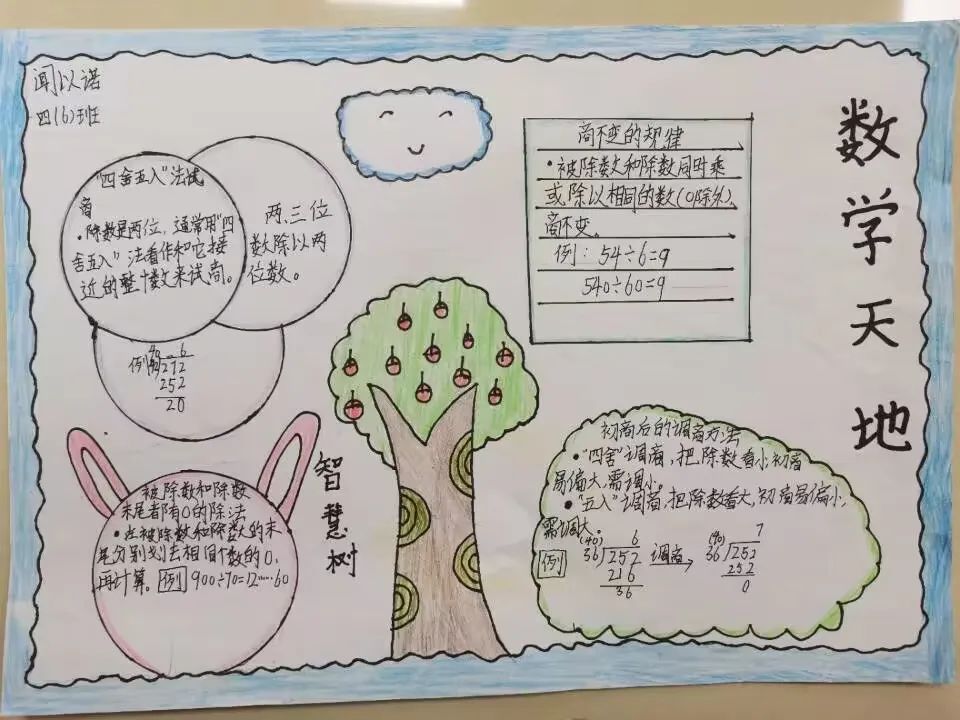 闻以诺
四(6)班
数学天地
"四舍五入"法试
商
·除数是两位,通常用"四
舍五入"法看作和它接
近的整十数来试商。
两、三位
数除以两
位数。
例
40 6
272
252
20
商不变的规律
·被除数和除数同时乘
或除以相同的数(0除外),
商不变。
例:54÷6=9
540÷60=9
智慧树
被除数和除数
末尾都有0的除法
·在被除数和除数的末
尾分别划去相同个数的0,
再计算。例 900÷70=12……60
初商后的调商方法
·"四舍"调商,把除数看小,初商
易偏大,需调小。
·"五入"调商,把除数看大,初商易偏小,
需调大。
(40) 6
例 36 252 调商→
216
36
(40) 7
36 252
252
0